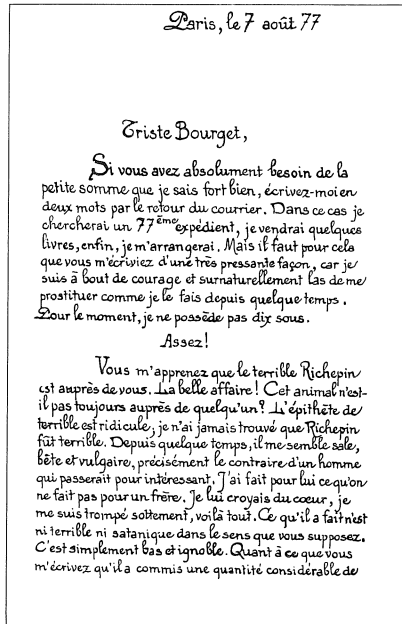 Paris, le 7 août 77
Triste Bourget,
Si vous avez absolument besoin de la
petite somme que je sais fort bien, écrivez-moi en
deux mots par le retour du courrier. Dans ce cas je
chercherai un 77ème expédient, je vendrai quelques
livres, enfin, je m'arrangerai. Mais il faut pour cela
que vous m'écriviez d'une très pressante façon, car je
suis à bout de courage et surnaturellement las de me
prostituer comme je le fais depuis quelque temps.
Pour le moment, je ne possède pas dix sous.
Assez!
Vous m'apprenez que le terrible Richepin
est auprès de vous. La belle affaire! Cet animal n'est-
il pas toujours auprès de quelqu'un? L'épithète de
terrible est ridicule, je n'ai jamais trouvé que Richepin
fût terrible. Depuis quelque temps, il me semble sale,
bête et vulgaire, précisément le contraire d'un homme
qui passerait pour intéressant. J'ai fait pour lui ce qu'on
ne fait pas pour un frère. Je lui croyais du cœur, je
me suis trompé sottement, voilà tout. Ce qu'il a fait n'est
ni terrible ni satanique dans le sens que vous supposez.
C'est simplement bas et ignoble. Quant à ce que vous
m'écrivez qu'il a commis une quantité considérable de